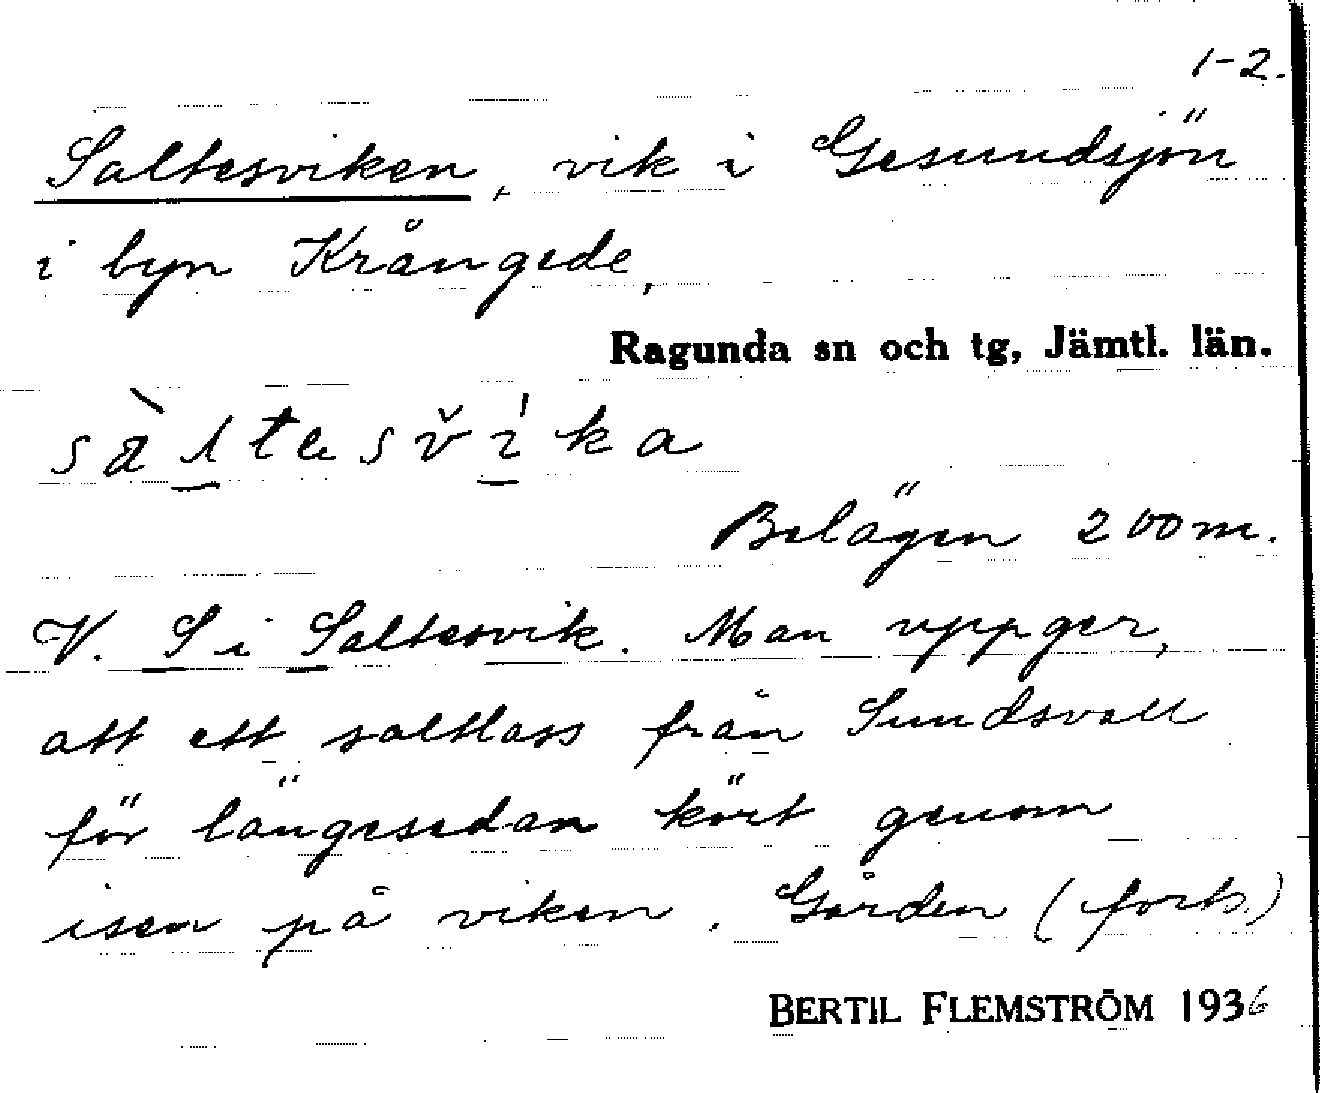 1-2.
Saltesviken, vik i Gesundsjön
i byn Krångede,
Ragunda sn och tg, Jämtl. län.
Belägen 200 m.
V. S i Saltesvik. Man uppger,
att ett saltlass från Sundsvall
för längesedan kört genom
isen på viken. Gården (forts.)
BERTIL FLEMSTRÖM 1936